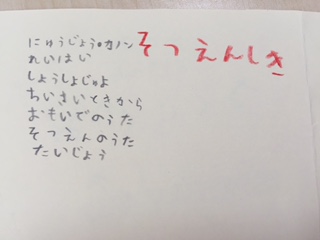 そつえんしき
にゅうじょう•カノン
れいはい
しょうしょじゅよ
ちいさいときから
おもいでのうた
そつえんのうた
たいじょう